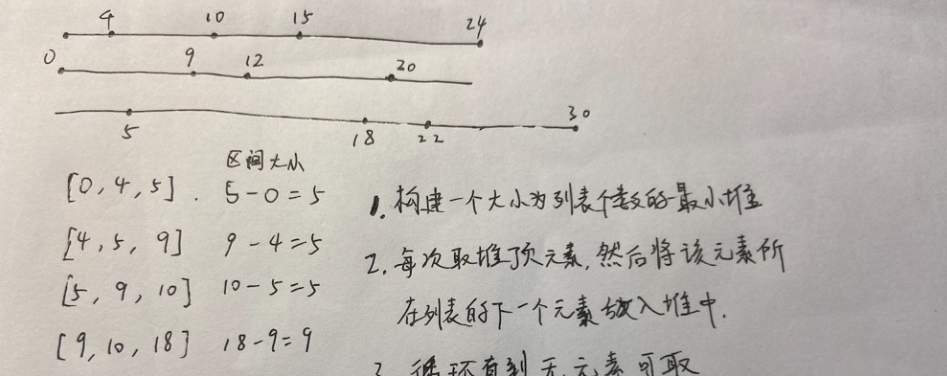 4 10 15 24
0 9 12 20
5 18 22 30
区间大小
[0, 4, 5]. 5-0=5
[4, 5, 9] 9-4=5
[5, 9, 10] 10-5=5
[9, 10, 18] 18-9=9
1. 构建一个大小为列表个数的最小堆
2. 每次取堆顶元素, 然后将该元素所
在列表的下一个元素放入堆中.
3 循环直到无元素可取